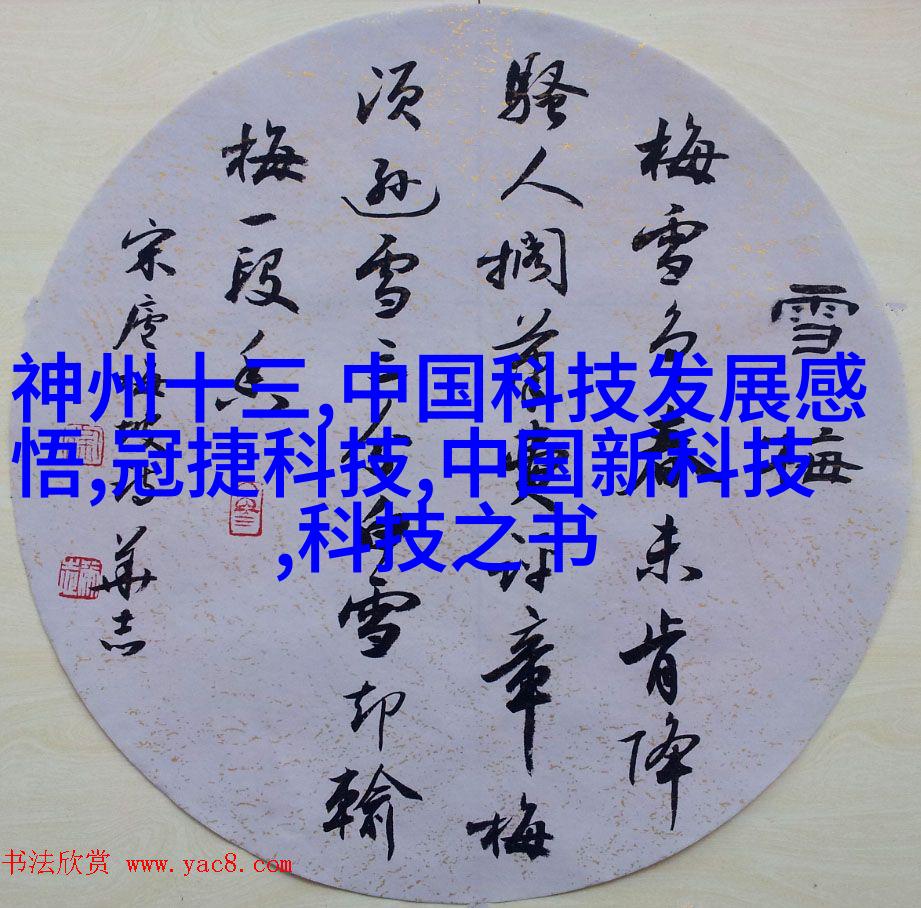 雪梅
梅雪争春未肯降
騷人搁章梅
须遜雪三分白雪却輸
梅一段香
宋盧梅坡诗 華志
神州十三,中国科技发展感
悟,冠捷科技,中国新科技
,科技之书
书法欣赏 www.yac8.com